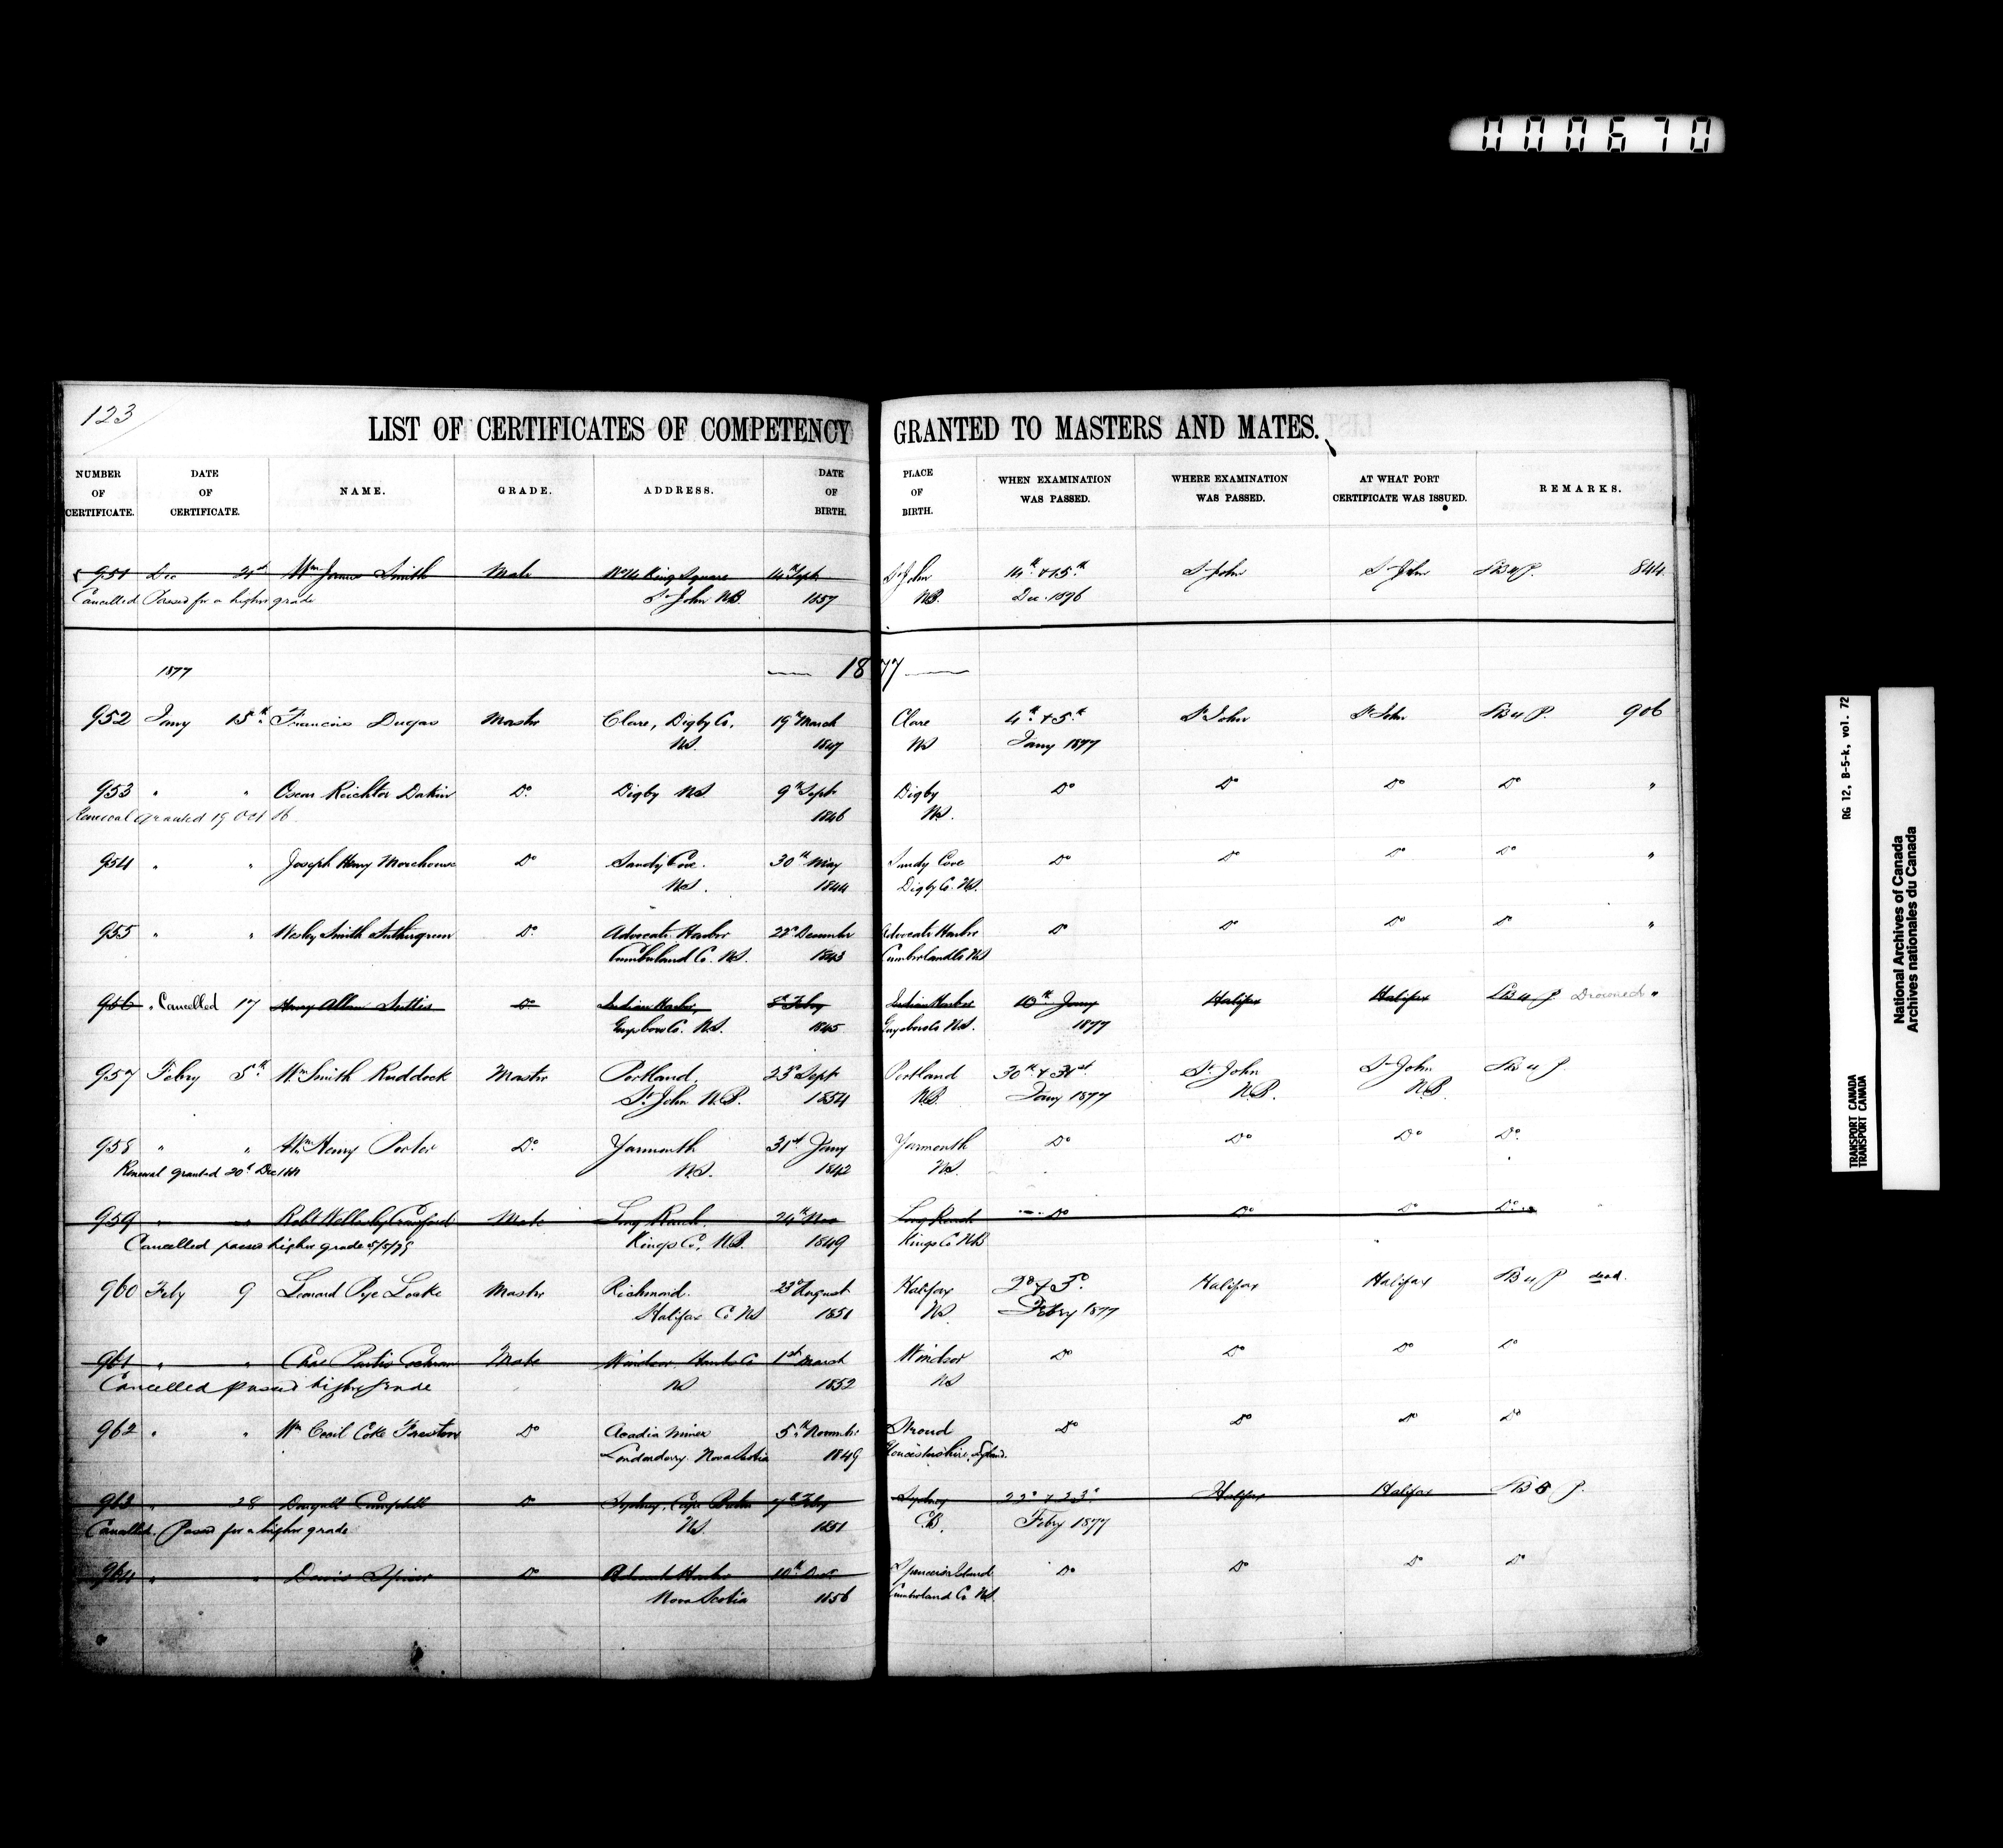 000670
123
LIST OF CERTIFICATES OF COMPETENCY GRANTED TO MASTERS AND MATES.
NUMBER OF CERTIFICATE. DATE OF CERTIFICATE. NAME. GRADE. ADDRESS. DATE OF BIRTH. PLACE OF BIRTH. WHEN EXAMINATION WAS PASSED. WHERE EXAMINATION WAS PASSED. AT WHAT PORT CERTIFICATE WAS ISSUED. REMARKS.
951 Dec 21st Wm James Smith Mate No 14 King Square 14th Sept St John 14th & 15th St John St John 844
Cancelled Passed for a higher grade St John NB. 1857 NB. Dec. 1876
1877 1877
952 Jany 15th Francois Dugas Master Clare, Digby Co, 19th March Clare 4th & 5th St John St John 906
NS. 1847 NS Jany 1877
953 " " Oscar Reichter Dakin Do. Digby NS. 9th Sept Digby Do Do Do Do "
Renewal granted 19 Oct 1846 NS.
954 " " Joseph Henry Morehouse Do Sandy Cove. 30th May Sandy Cove Do Do Do Do "
NS. 1844 Digby Co. NS.
955 " " Wesley Smith Do. Advocate Harbor 22d December Advocate Harbor Do Do Do Do "
Cumberland Co. NS. 1843 Cumberland Co NS
956 " Cancelled 17 Henry Allan Do Indian Harbor, Feby Indian Harbor 10th Jany Halifax Halifax Drowned "
Guysboro Co. NS. 1845 Guysboro Co NS. 1877
957 Febry 5th Wm Smith Ruddock Master Portland, 23d Sept Portland 30th & 31st St John St John
St John N.B. 1854 NB. Jany 1877 N.B. N.B.
958 " " Wm Henry Porter Do. Yarmouth 31st Jany Yarmouth Do Do Do Do.
Renewal granted 20th Dec NS. 1842 NS.
959 " " Robt Wellesly Crawford Mate Long Reach. 24th Nov Long Reach Do Do Do Do
Cancelled passed higher grade 5/5/79 Kings Co, NB. 1849 Kings Co NB
960 Feby 9 Leonard Pye Loake Master Richmond. 23d August Halifax 2d & 3d. Halifax Halifax dead.
Halifax Co NS 1851 NS. Febry 1877
961 " " Chas Cochran Mate Windsor, Hants Co 1st March Windsor Do Do Do Do
Cancelled passed higher grade NS 1852 NS
962 " " Wm Cecil Coke Do Acadia Mines 5th November Stroud Do Do Do Do
Londonderry. Nova Scotia 1849 Gloucestershire, England.
963 " 28 Dougall Campbell Do Sydney, Cape Breton 7th Feby Sydney 22d & 23d Halifax Halifax
Cancelled. Passed for a higher grade NS. 1851 C.B. Feby 1877
964 " " Spicer Do Advocate Harbor 10th Spencers Island Do Do Do Do
Nova Scotia 1856 Cumberland Co NS.
RG 12, B-5-k, vol. 72
TRANSPORT CANADA
TRANSPORT CANADA
National Archives of Canada
Archives nationales du Canada